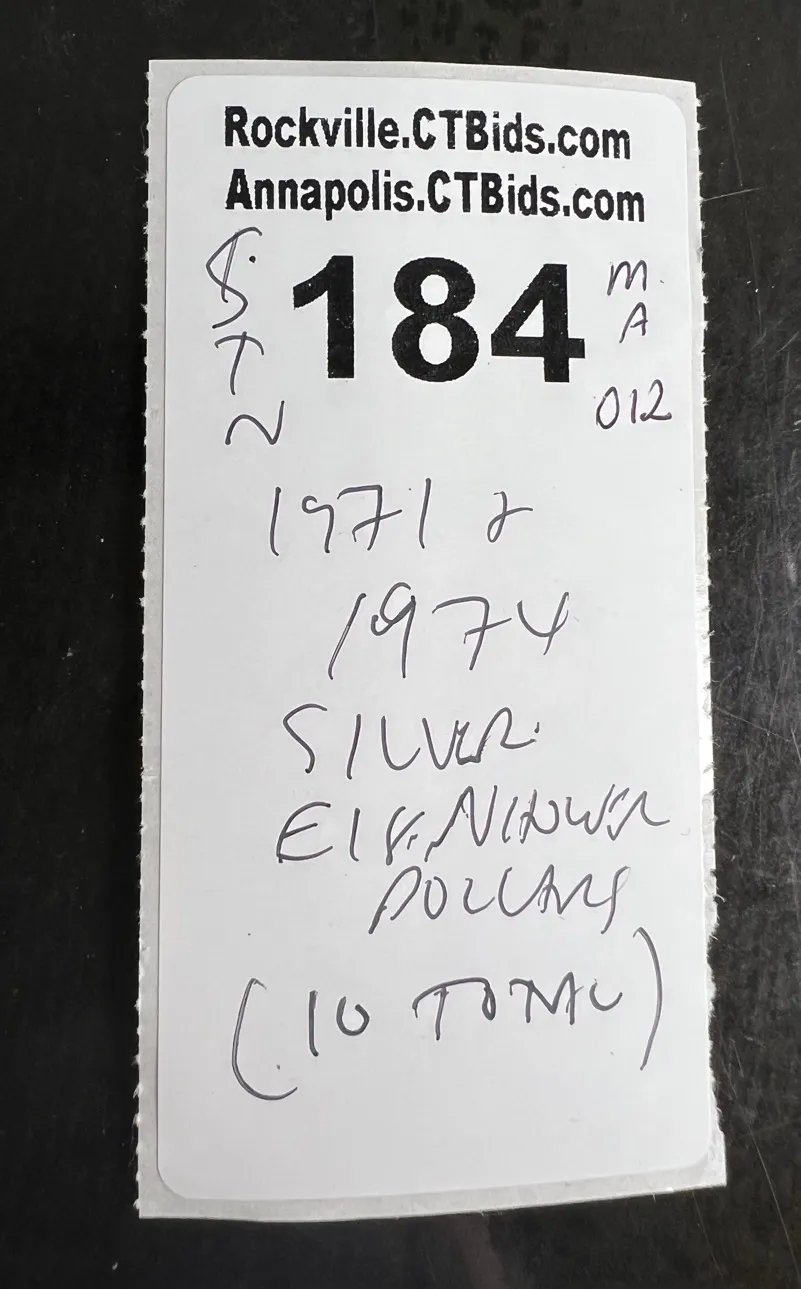 Rockville.CTBids.com
Annapolis.CTBids.com
184
S
T
N
M.
A
012
1971 &
1974
SILVER
EISENHOWER
DOLLARS
(10 TOTAL)